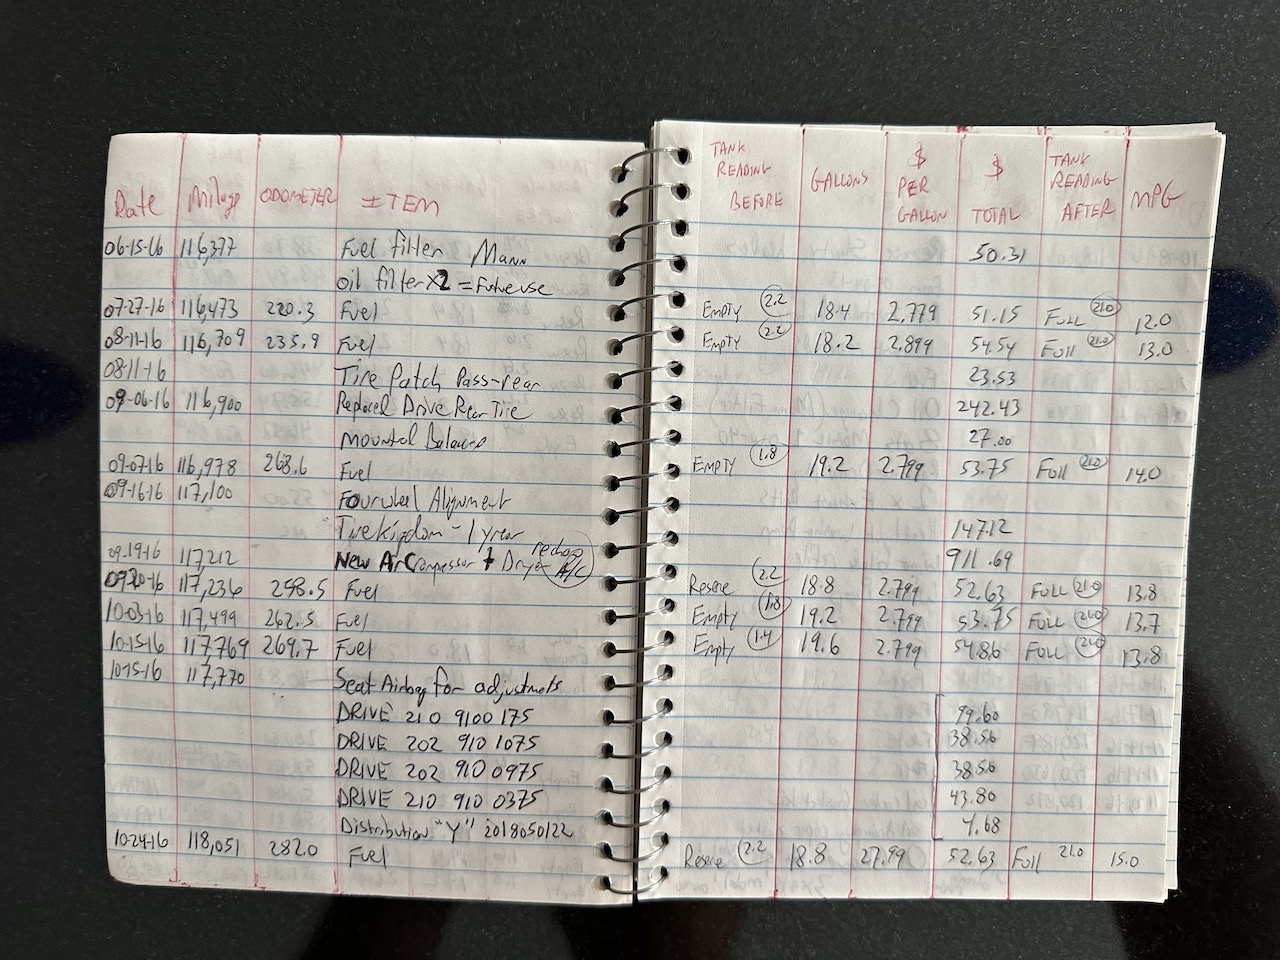 Date Mileage ODOMETER ITEM TANK READING BEFORE GALLONS $ PER GALLON $ TOTAL TANK READING AFTER MPG
06-15-16 116,377 Fuel filter Mann 50.31
oil filter x2 = Future use
07-27-16 116,473 220.3 Fuel Empty 2.2 18.4 2.779 51.15 Full 21.0 12.0
08-11-16 116,709 235.9 Fuel Empty 2.2 18.2 2.899 54.54 Full 21.0 13.0
08-11-16 Tire Patch Pass-rear 23.53
09-06-16 116,900 Replaced Drive Rear Tire 242.43
Mounted Balanced 27.00
09-07-16 116,978 268.6 Fuel Empty 1.8 19.2 2.799 53.75 Full 21.0 14.0
09-16-16 117,100 Four wheel Alignment
Tire Kigdom - 1 year 147.12
09-19-16 117,212 New Air Compressor + Dryer recharg A/C 911.69
09-20-16 117,236 258.5 Fuel Reserve 2.2 18.8 2.799 52.63 Full 21.0 13.8
10-03-16 117,499 262.5 Fuel Empty 1.8 19.2 2.799 53.75 Full 21.0 13.7
10-15-16 117,769 269.7 Fuel Empty 1.4 19.6 2.799 54.86 Full 21.0 13.8
10-15-16 117,770 Seat Airbag for adjustmets
DRIVE 210 9100 175 99.60
DRIVE 202 910 1075 38.56
DRIVE 202 910 0975 38.56
DRIVE 210 910 0375 43.80
Distribution "Y" 2018050122 4.68
10-24-16 118,051 282.0 Fuel Reserve 2.2 18.8 27.99 52.63 Full 21.0 15.0